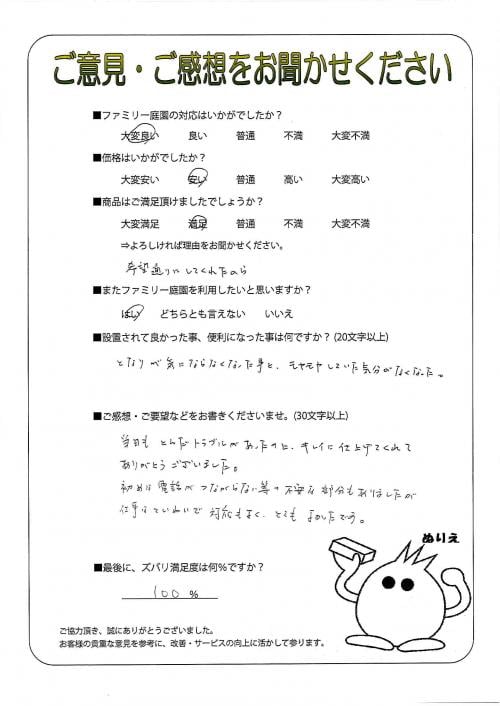 ご意見・ご感想をお聞かせください
■ファミリー庭園の対応はいかがでしたか？
大変良い 良い 普通 不満 大変不満
■価格はいかがでしたか？
大変安い 安い 普通 高い 大変高い
■商品はご満足頂けましたでしょうか？
大変満足 満足 普通 不満 大変不満
⇒よろしければ理由をお聞かせください。
希望通りにしてくれたから
■またファミリー庭園を利用したいと思いますか？
はい どちらとも言えない いいえ
■設置されて良かった事、便利になった事は何ですか？(20文字以上)
となりが気にならなくなった事と、モヤモヤしていた気分がなくなった。
■ご感想・ご要望などをお書きくださいませ。(30文字以上)
当日も とんだトラブルがあったのに、キレイに仕上げてくれて
ありがとうございました。
初めは電話がつながらない等の不安な部分もありましたが
仕事はていねいで対応もよく、とてもよかったです。
ぬりえ
■最後に、ズバリ満足度は何％ですか？
100 %
ご協力頂き、誠にありがとうございました。
お客様の貴重な意見を参考に、改善・サービスの向上に活かして参ります。